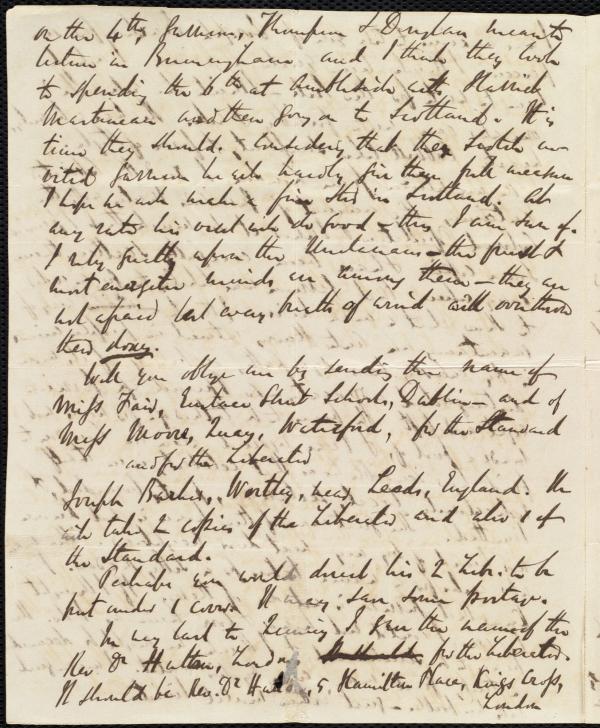 on the 4th, Garrison, Thompson & Douglass meant to
lecture in Birmingham and I think they look
to spending the 6th at Ambleside with Harriet
Martineau and then going on to Scotland. It is
time they should. Considering that the Scotch in-
vited Garrison he will hardly give them full measure
I hope he will make a firm stand in Scotland. At
any rate his visit will do good – this I am sure of.
I rely greatly upon the Unitarians – the freest &
most energetic minds are among them – they are
not afraid lest every breath of wind will overthrow
their doxy.
Will you oblige me by sending the name of
Miss Fair, Eustace Street Schools, Dublin – and of
Miss Moore, Quay, Waterford, for the Standard
and for the Liberator
Joseph Barker, Wortley, near Leeds, England. He
will take 2 copies of the Liberator and also 1 of
the Standard.
Perhaps you would direct his 2 Libs. to be
put under 1 cover. It may save some postage.
In my last to Quincy I gave the name of the
Rev. Dr Hutton, London for the Liberator.
It should be Rev. Dr Hutton, 5, Hamilton Place, Kings Cross,
London